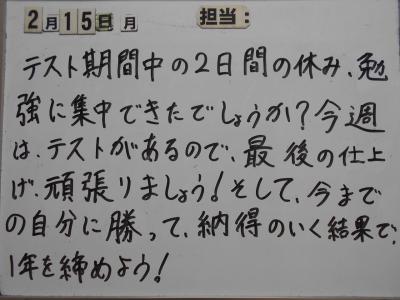 2月15日月 担当：
テスト期間中の2日間の休み、勉
強に集中できたでしょうか？今週
は、テストがあるので、最後の仕上
げ、頑張りましょう！そして、今まで
の自分に勝って、納得のいく結果で、
1年を締めよう！